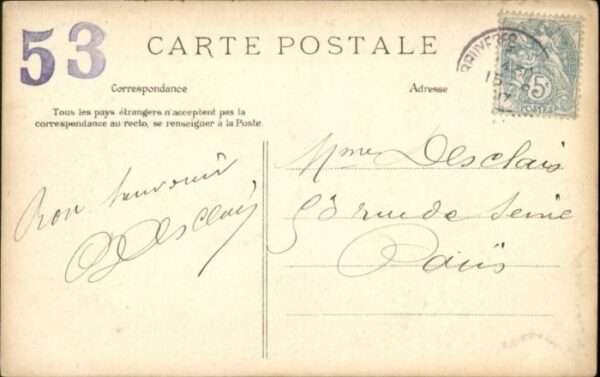 53
CARTE POSTALE
BRUYERES
5c
POSTES
Correspondance
Adresse
Tous les pays étrangers n'acceptent pas la
correspondance au recto, se renseigner à la Poste.
Bon Souvenir
Desclais
Mme Desclais
53 rue de Seine
Paris